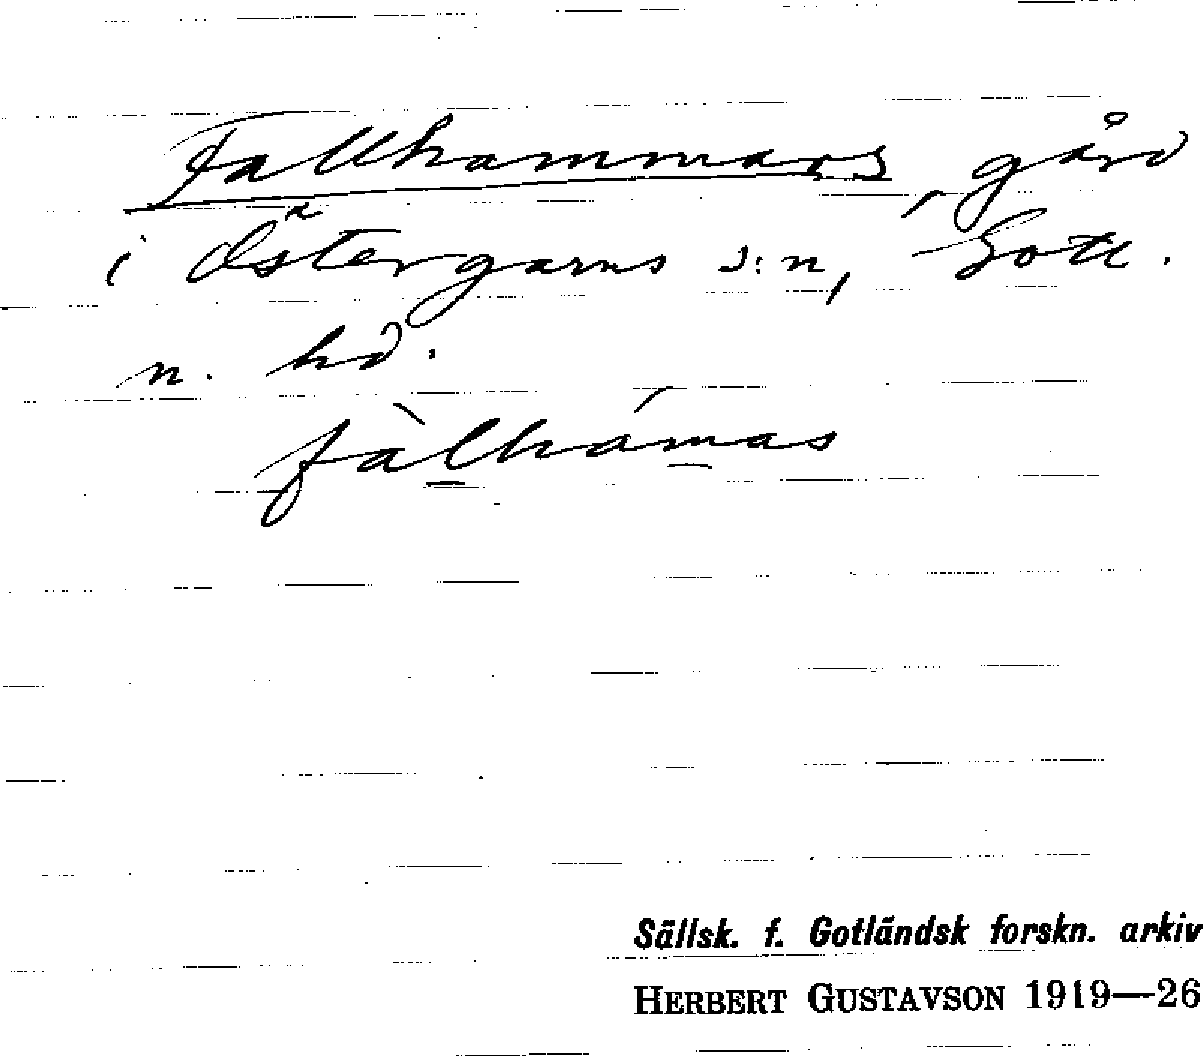 Fallhammars, gård
i Östergarns s:n, Gotl.
n. hd.
fàlhámas
Sällsk. f. Gotländsk forskn. arkiv
HERBERT GUSTAVSON 1919—26